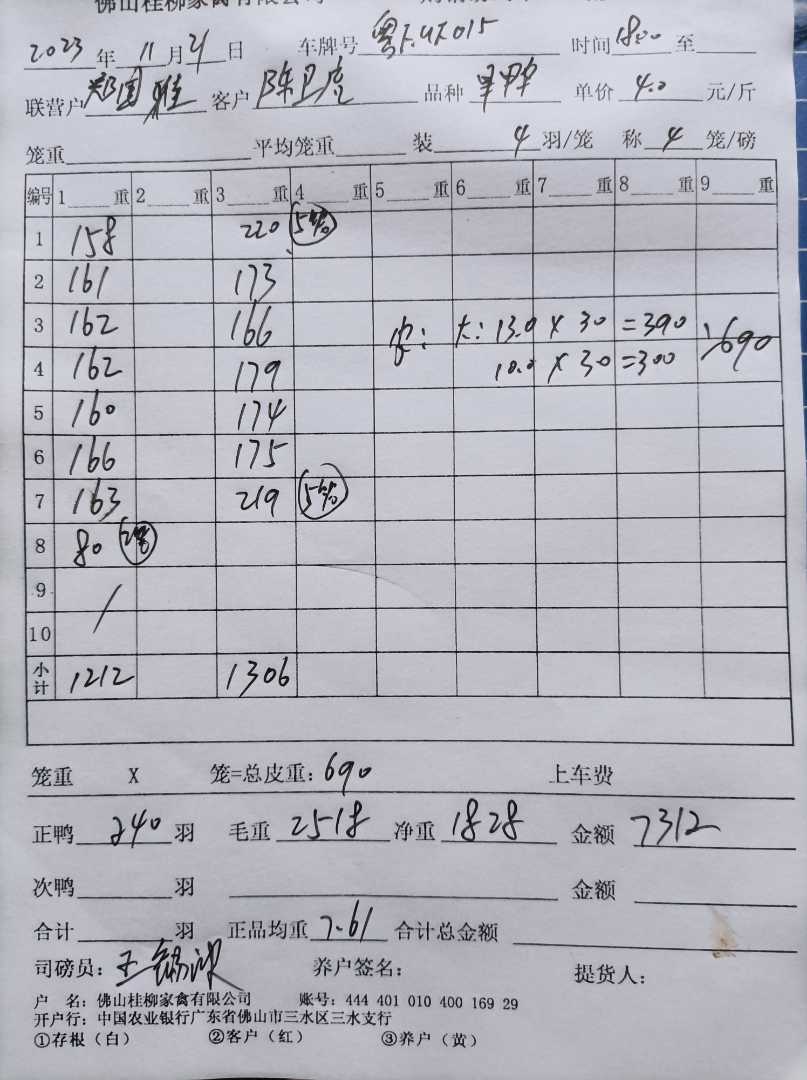 佛山桂柳家禽有限公司
2023 年 11 月 21 日 车牌号 时间 18:00 至
联营户 郑国雅 客户 陈卫亮 品种 单价 4.0 元/斤
笼重 平均笼重 装 4 羽/笼 称 4 笼/磅
编号 1 重 2 重 3 重 4 重 5 重 6 重 7 重 8 重 9 重
1 158 220
2 161 173
3 162 166 皮: 大: 13.0 X 30 =390 690
4 162 179 10.0 X 30 =300
5 160 174
6 166 175
7 163 219
8 80
9
10
小计 1212 1306
笼重 X 笼=总皮重: 690 上车费
正鸭 240 羽 毛重 2518 净重 1828 金额 7312
次鸭 羽 金额
合计 羽 正品均重 7.61 合计总金额
司磅员: 养户签名: 提货人:
户 名: 佛山桂柳家禽有限公司 账号: 444 401 010 400 169 29
开户行: 中国农业银行广东省佛山市三水区三水支行
①存根（白） ②客户（红） ③养户（黄）